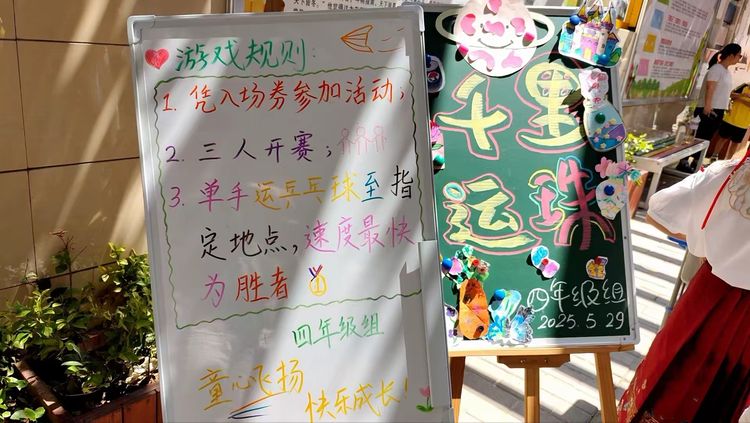 游戏规则:
1. 凭入场券参加活动;
2. 三人开赛;
3. 单手运乒乓球至指
定地点,速度最快
为胜者
四年级组
童心飞扬
快乐成长!
千里
运珠
四年级组
2025.5.29